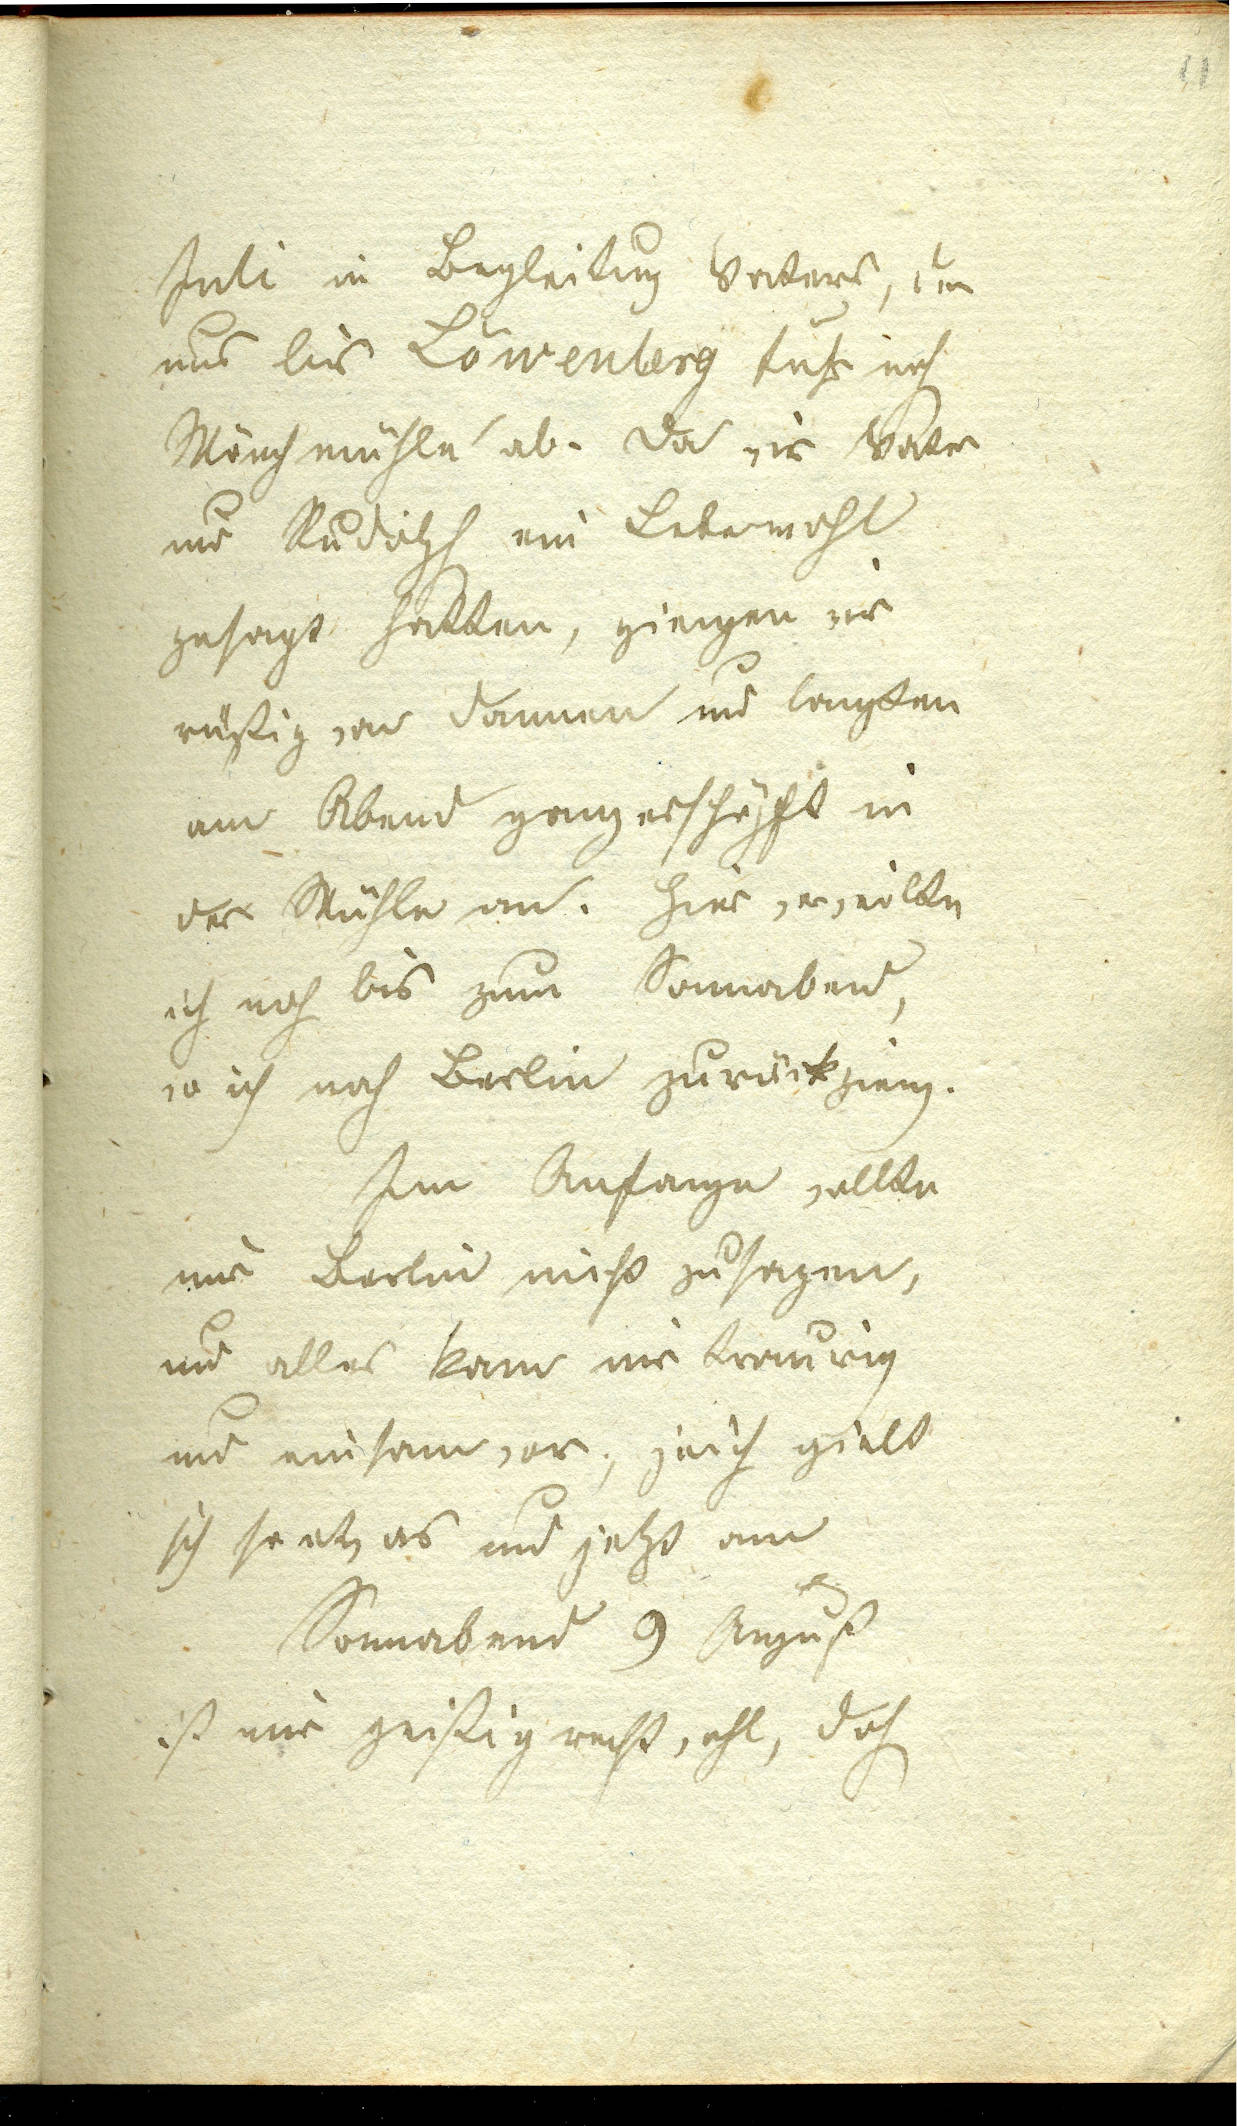 11
Juli in Begleitung Vaters, der
uns bis Löwenberg fuhr nach
Mönchmühle ab. Da wir Vater
und Rudolph ein Lebewohl
gesagt hatten, giengen wir
rüstig von dannen und langten
am Abend ganz erschöpft in
der Mühle an. Hier verweilte
ich noch bis zum Sonnabend,
wo ich nach Berlin zurückgieng.
Im Anfange wollte
mir Berlin nicht zusagen,
und alles kam mir traurig
und einsam vor, gielt
sich so etwas und jetzt am
Sonnabend 9 August
ist mir geistig recht wohl, doch